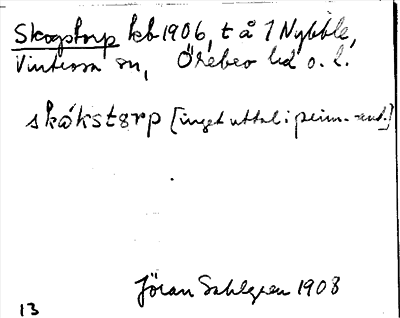 Skogstorp lb 1906, t å 1 Nybble,
Vintrosa sn, Örebro hd o. l.
skåkstorp [inget uttal i prim.-ant.]
Jöran Sahlgren 1908
13